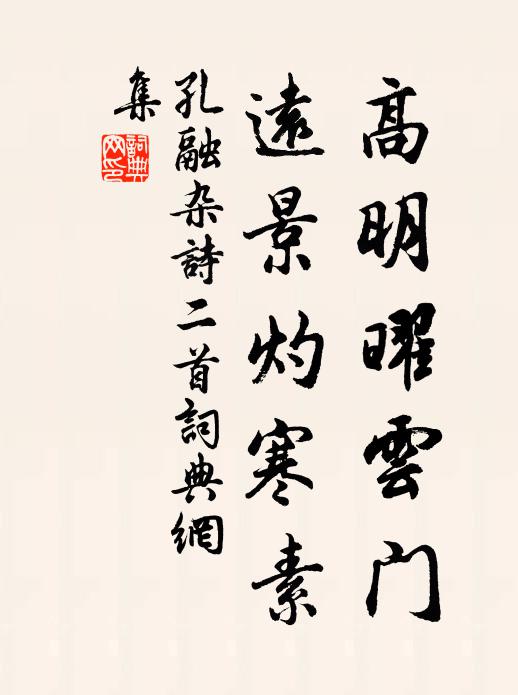 高明曜雲门
遠景灼寒素
孔融杂詩二首詞典網
集
詞典網印